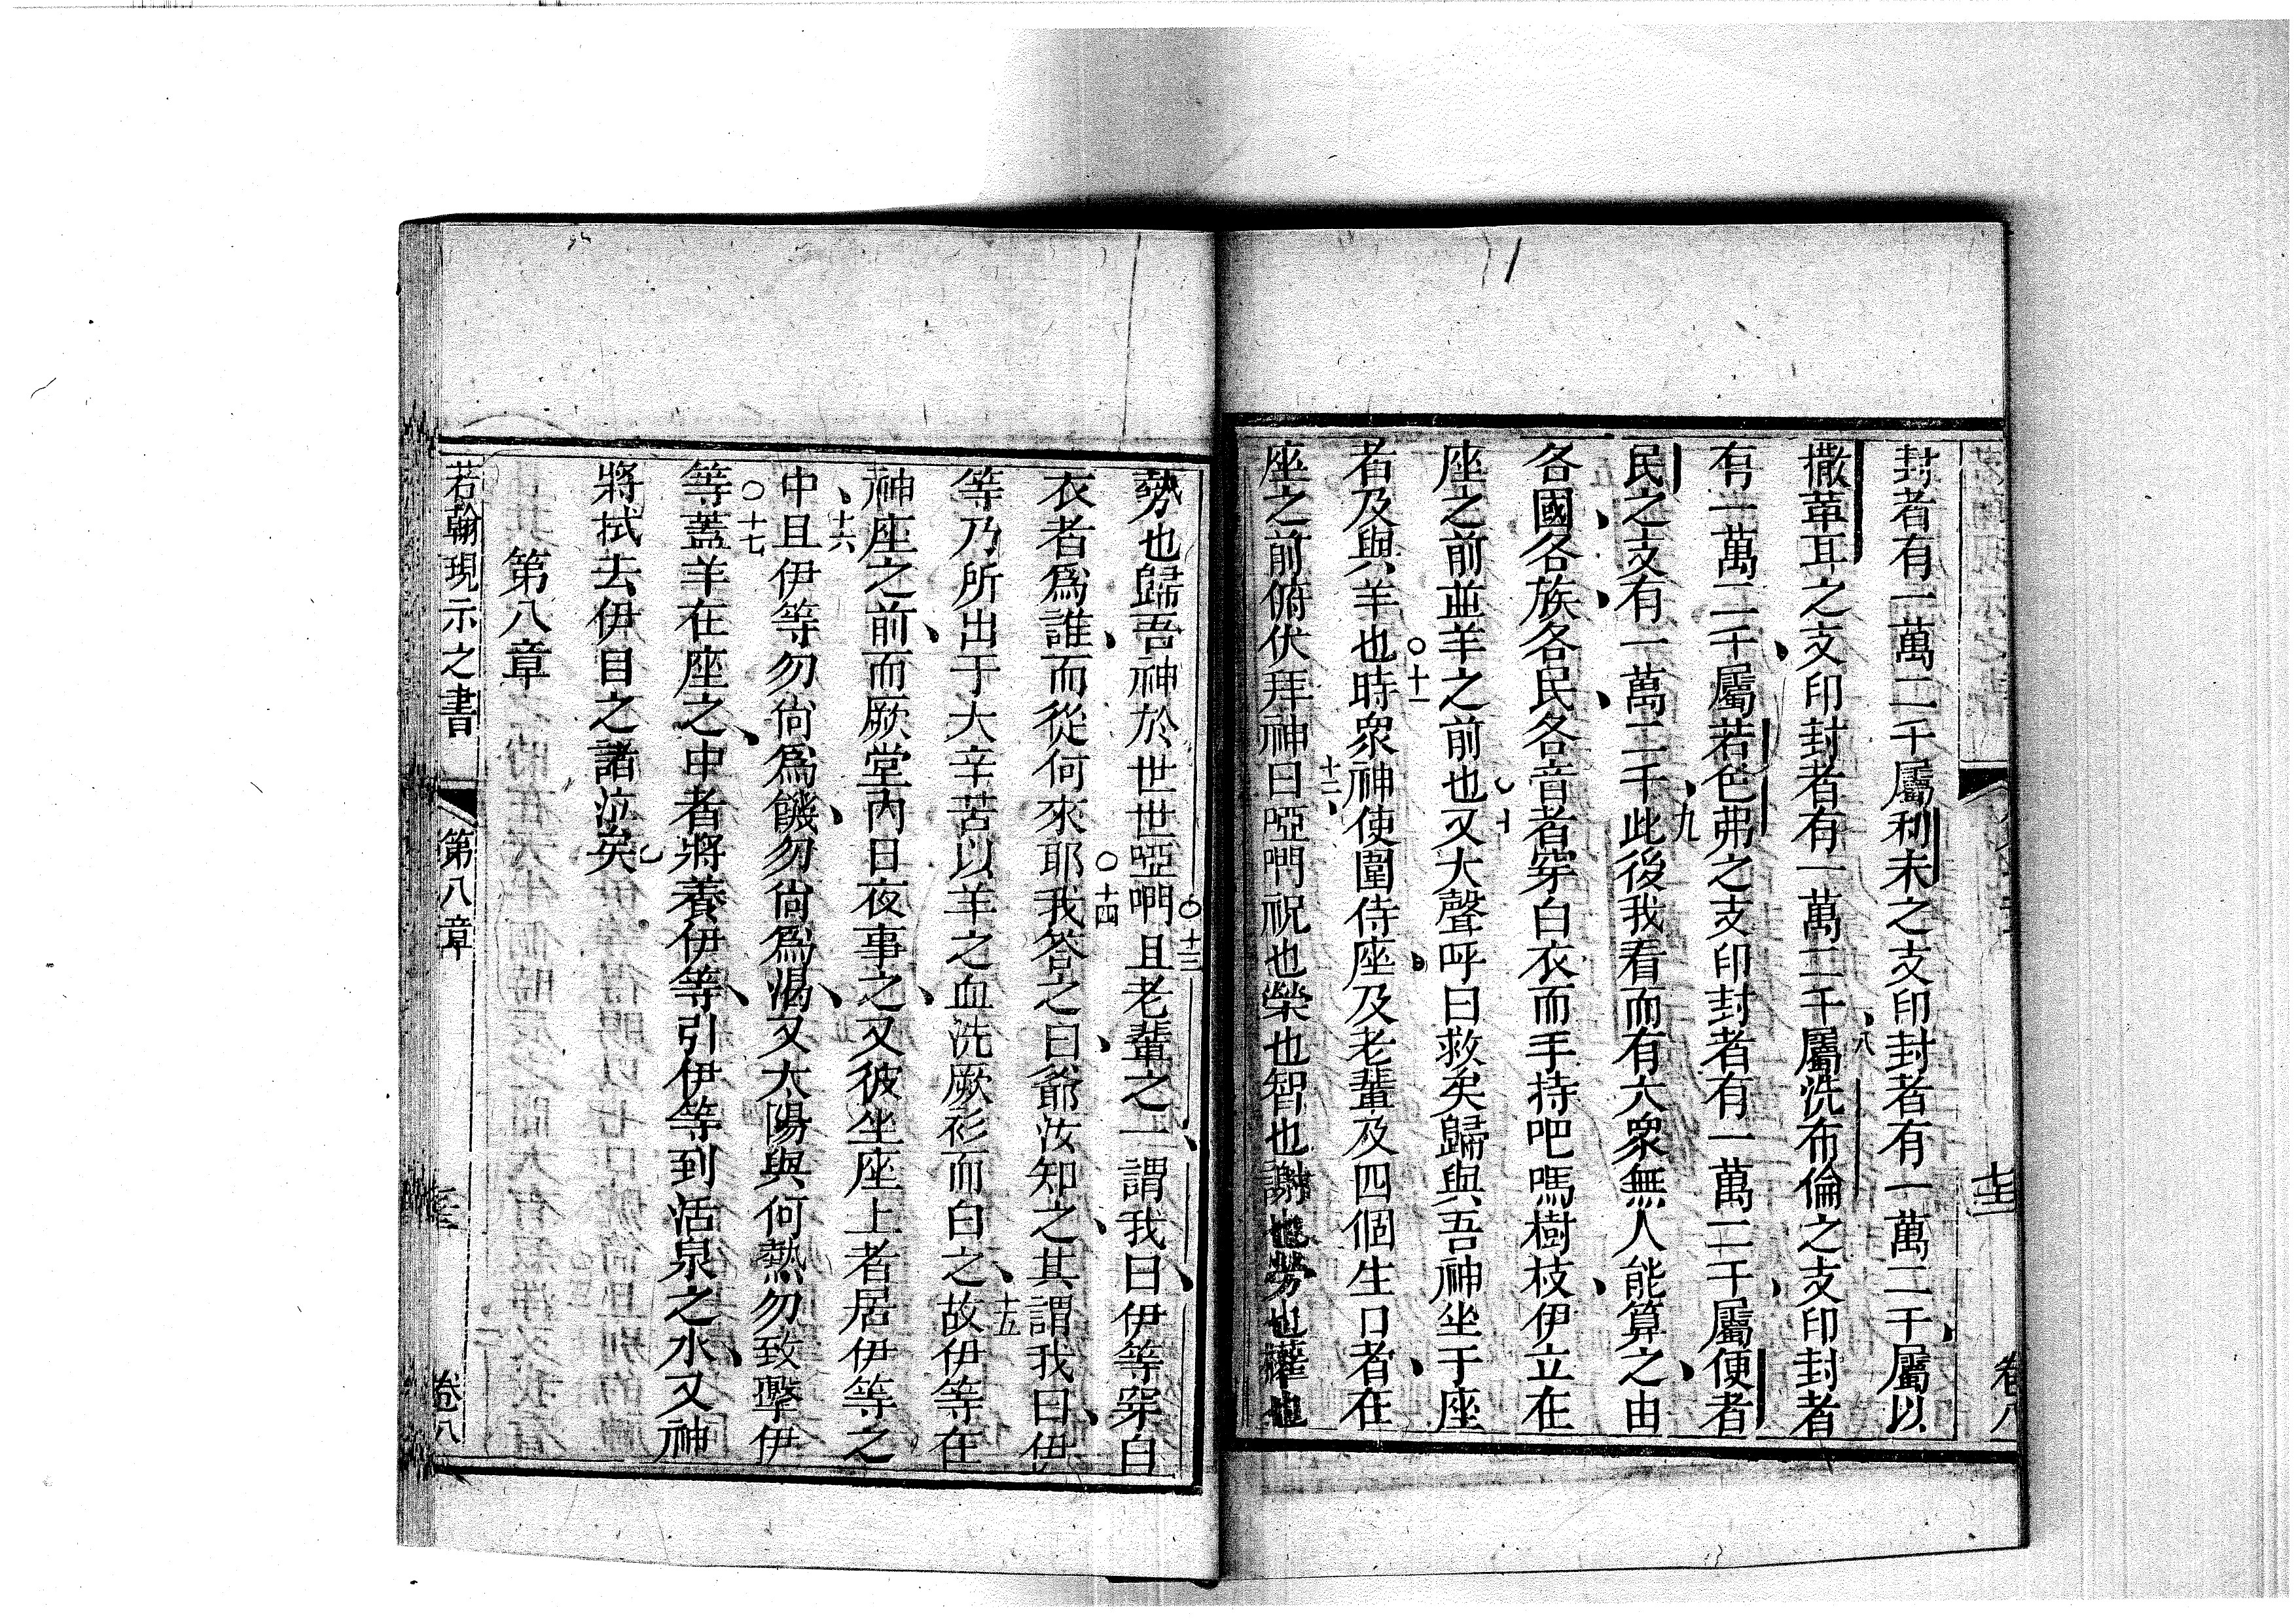 封者有一萬二千屬利未之支印封者有一萬二千屬以
撒革耳之支印封者有一萬二千屬洗布倫之支印封者
有一萬二千屬若色弗之支印封者有一萬二千屬便者
民之支有一萬二千此後我看而有大衆無人能算之由
各國各族各民各音者穿白衣而手持吧嗎樹枝伊立在
座之前並羊之前也又大聲呼曰救矣歸與吾神坐于座
者及與羊也時衆神使圍侍座及老輩及四個生口者在
座之前俯伏拜神曰啞們祝也榮也智也謝也勞也權也
勢也歸吾神於世世啞們且老輩之一謂我曰伊等穿白
衣者爲誰而從何來耶我答之曰爺汝知之其謂我曰伊
等乃所出于大辛苦以羊之血洗厥衫而白之故伊等在
神座之前而厥堂內日夜事之又彼坐座上者居伊等之
中且伊等勿尙爲饑勿尙爲渴又太陽與何熱勿致擊伊
等蓋羊在座之中者將養伊等引伊等到活泉之水又神
將拭去伊目之諸泣矣
第八章
若翰現示之書 第八章 卷八